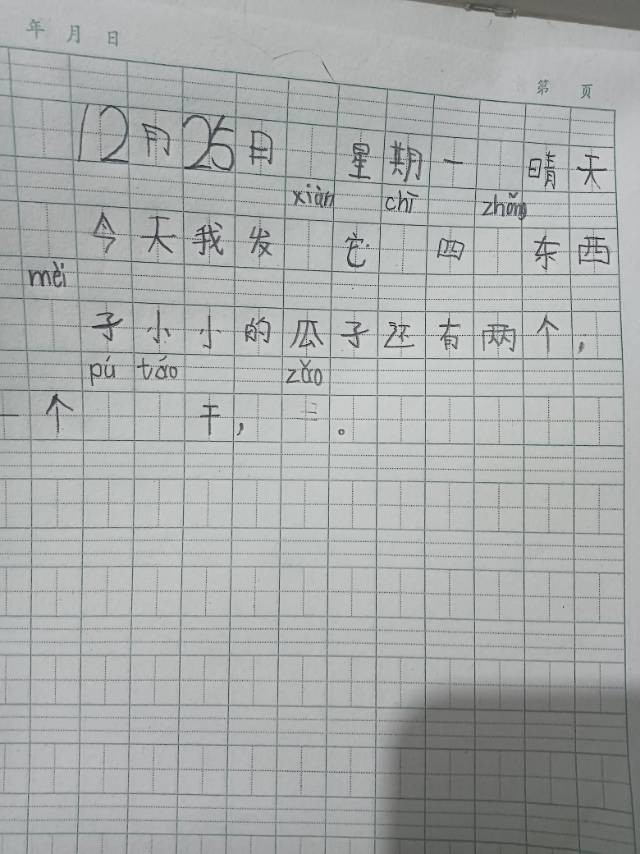 年 月 日
第 页
12月25日 星期一 晴天
xiàn chī zhǒng
今天我发 它 四 东西
mèi
子小小的瓜子还有两个,
pú táo zǎo
一个 干, 三。